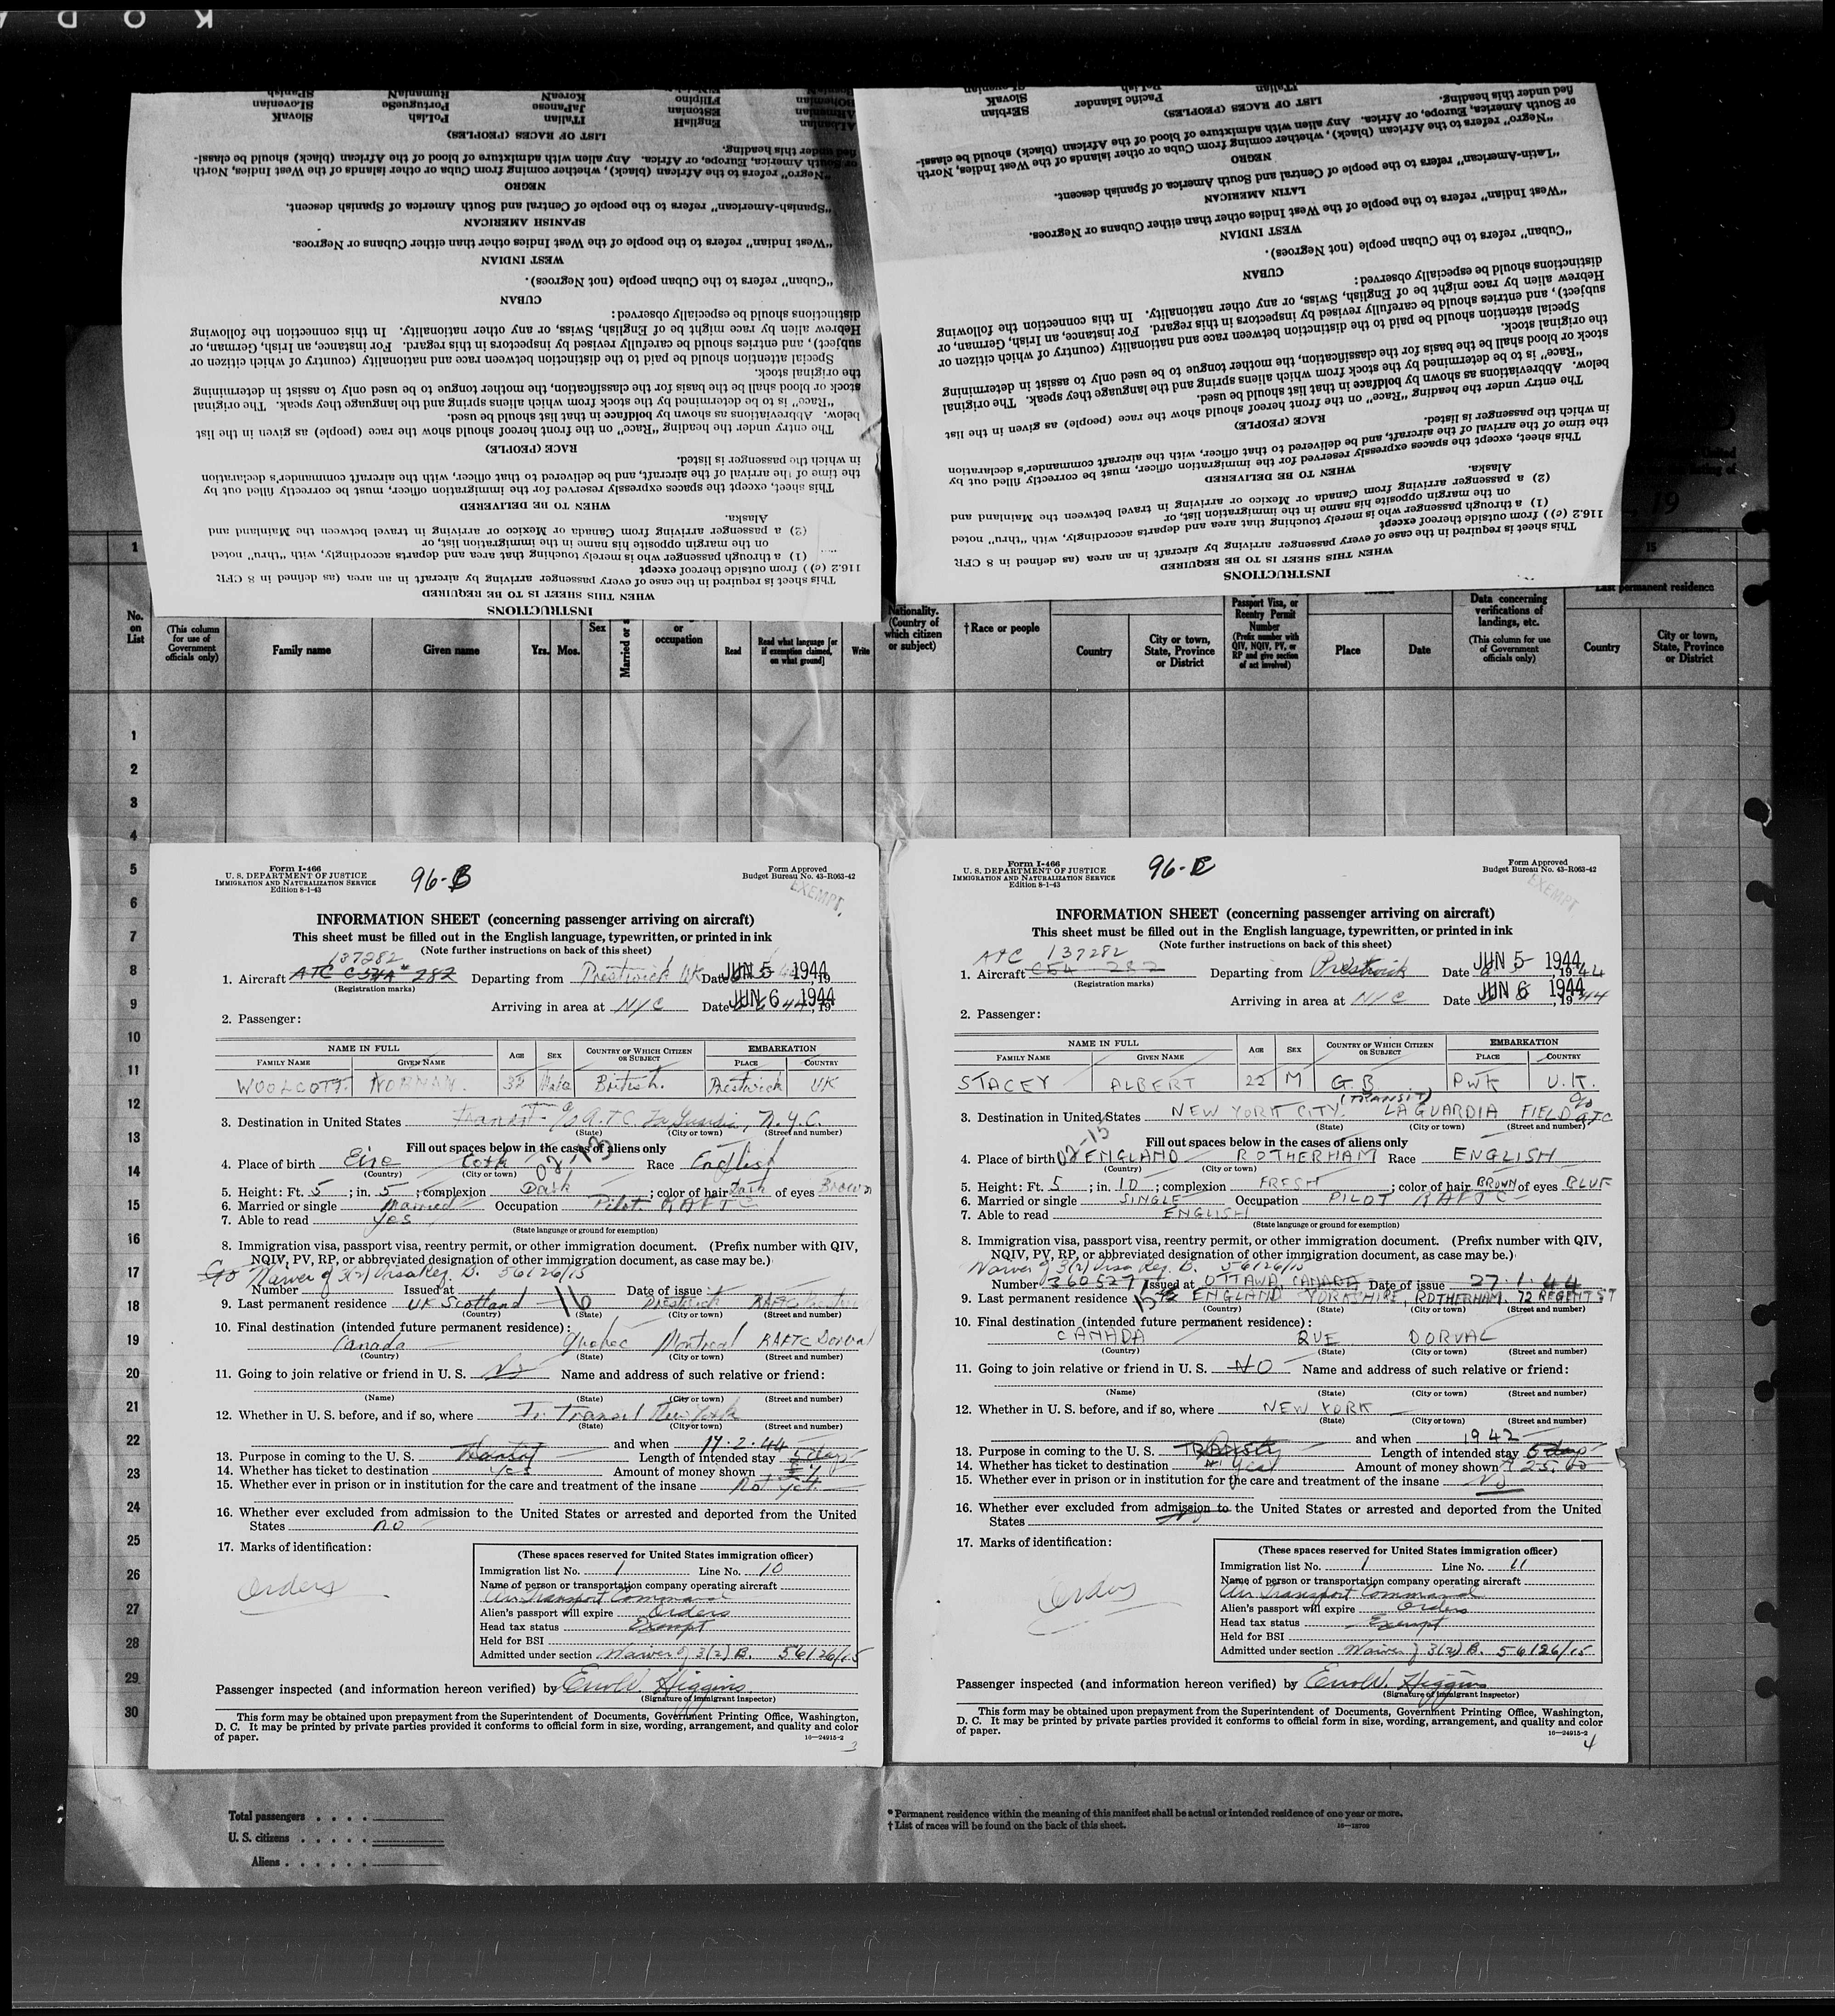 K O D A
SLovenian
PortugueSe
RumaniaN
SPanish
SlovaK
PoLish
ItaliaN
JaPanese
KoreaN
EnglisH
EStonian
FIlipino
LIST OF RACES (PEOPLES)
"Negro" refers to the African (black), whether coming from Cuba or other islands of the West Indies, North
or South America, Europe, or Africa. Any alien with admixture of blood of the African (black) should be classi-
fied under this heading.
NEGRO
"Spanish-American" refers to the people of Central and South America of Spanish descent.
SPANISH AMERICAN
"West Indian" refers to the people of the West Indies other than either Cubans or Negroes.
WEST INDIAN
"Cuban" refers to the Cuban people (not Negroes).
CUBAN
distinctions should be especially observed:
Hebrew alien by race might be of English, Swiss, or any other nationality. In this connection the following
subject), and entries should be carefully revised by inspectors in this regard. For instance, an Irish, German, or
Special attention should be paid to the distinction between race and nationality (country of which citizen or
the original stock.
stock or blood shall be the basis for the classification, the mother tongue to be used only to assist in determining
"Race" is to be determined by the stock from which aliens spring and the language they speak. The original
below. Abbreviations as shown by boldface in that list should be used.
The entry under the heading "Race" on the front hereof should show the race (people) as given in the list
RACE (PEOPLE)
in which the passenger is listed.
the time of the arrival of the aircraft, and be delivered to that officer, with the aircraft commander's declaration
This sheet, except the spaces expressly reserved for the immigration officer, must be correctly filled out by
WHEN TO BE DELIVERED
Alaska.
(2) a passenger arriving from Canada or Mexico or arriving in travel between the Mainland and
on the margin opposite his name in the immigration list, or
(1) a through passenger who is merely touching that area and departs accordingly, with "thru" noted
116.2 (c)) from outside thereof except
This sheet is required in the case of every passenger arriving by aircraft in an area (as defined in 8 CFR
WHEN THIS SHEET IS TO BE REQUIRED
INSTRUCTIONS
SlovaK
SErbian
Pacific Islander
LIST OF RACES (PEOPLES)
fied under this heading.
or South America, Europe, or Africa. Any alien with admixture of blood of the African (black) should be classi-
"Negro" refers to the African (black), whether coming from Cuba or other islands of the West Indies, North
NEGRO
"Latin-American" refers to the people of Central and South America of Spanish descent.
LATIN AMERICAN
"West Indian" refers to the people of the West Indies other than either Cubans or Negroes.
WEST INDIAN
"Cuban" refers to the Cuban people (not Negroes).
CUBAN
distinctions should be especially observed:
Hebrew alien by race might be of English, Swiss, or any other nationality. In this connection the following
subject), and entries should be carefully revised by inspectors in this regard. For instance, an Irish, German, or
Special attention should be paid to the distinction between race and nationality (country of which citizen or
the original stock.
stock or blood shall be the basis for the classification, the mother tongue to be used only to assist in determining
"Race" is to be determined by the stock from which aliens spring and the language they speak. The original
below. Abbreviations as shown by boldface in that list should be used.
The entry under the heading "Race" on the front hereof should show the race (people) as given in the list
RACE (PEOPLE)
in which the passenger is listed.
the time of the arrival of the aircraft, and be delivered to that officer, with the aircraft commander's declaration
This sheet, except the spaces expressly reserved for the immigration officer, must be correctly filled out by
WHEN TO BE DELIVERED
Alaska.
(2) a passenger arriving from Canada or Mexico or arriving in travel between the Mainland and
on the margin opposite his name in the immigration list, or
(1) a through passenger who is merely touching that area and departs accordingly, with "thru" noted
116.2 (c)) from outside thereof except
This sheet is required in the case of every passenger arriving by aircraft in an area (as defined in 8 CFR
WHEN THIS SHEET IS TO BE REQUIRED
INSTRUCTIONS
19
1
15
No. on List
(This column for use of Government officials only)
Family name
Given name
Yrs.
Mos.
Sex
Married or s
or occupation
Read
Read what language [or if exemption claimed, on what ground]
Write
Nationality. (Country of which citizen or subject)
†Race or people
Country
City or town, State, Province or District
Passport Visa, or Reentry Permit Number
(Prefix number with QIV, NQIV, PV, or RP and give section of act involved)
Place
Date
Data concerning verifications of landings, etc.
(This column for use of Government officials only)
Last permanent residence
Country
City or town, State, Province or District
1
2
3
4
5
6
7
8
9
10
11
12
13
14
15
16
17
18
19
20
21
22
23
24
25
26
27
28
29
30
Form I-466
U. S. DEPARTMENT OF JUSTICE
IMMIGRATION AND NATURALIZATION SERVICE
Edition 8-1-43
96-B
Form Approved
Budget Bureau No. 43-R063-42
EXEMPT.
INFORMATION SHEET (concerning passenger arriving on aircraft)
This sheet must be filled out in the English language, typewritten, or printed in ink
(Note further instructions on back of this sheet)
137282
1. Aircraft ATC C54A# 282 Departing from Prestwick UK Date JUN 5 1944, 19
(Registration marks)
Arriving in area at NYC Date JUN 6 1944, 19
2. Passenger:
NAME IN FULL AGE SEX COUNTRY OF WHICH CITIZEN OR SUBJECT EMBARKATION
FAMILY NAME GIVEN NAME PLACE COUNTRY
WOOLCOTT. NORMAN. 32 Male British. Prestwick UK
3. Destination in United States Transit c/o A.T.C. La Guardia, N.Y.C.
(State) (City or town) (Street and number)
Fill out spaces below in the cases of aliens only
02-13
4. Place of birth Eire Cork Race English
(Country) (City or town)
5. Height: Ft. 5; in. 5; complexion Dark; color of hair Dark of eyes Brown
6. Married or single Married Occupation Pilot. RAFTC
7. Able to read yes
(State language or ground for exemption)
8. Immigration visa, passport visa, reentry permit, or other immigration document. (Prefix number with QIV,
NQIV, PV, RP, or abbreviated designation of other immigration document, as case may be.)
Waiver of 3(2) Visa Reg. B. 56126/15
Number Issued at Date of issue
9. Last permanent residence UK Scotland 16 Prestwick RAFTC
(Country) (State) (City or town) (Street and number)
10. Final destination (intended future permanent residence):
Canada Quebec Montreal RAFTC Dorval
(Country) (State) (City or town) (Street and number)
11. Going to join relative or friend in U. S. No Name and address of such relative or friend:
(Name) (State) (City or town) (Street and number)
12. Whether in U. S. before, and if so, where In Transit New York
(State) (City or town) (Street and number)
and when 17.2.44
13. Purpose in coming to the U. S. Transit Length of intended stay 5 days
14. Whether has ticket to destination yes Amount of money shown £4
15. Whether ever in prison or in institution for the care and treatment of the insane Not yet.
16. Whether ever excluded from admission to the United States or arrested and deported from the United
States no
17. Marks of identification:
Orders
(These spaces reserved for United States immigration officer)
Immigration list No. 1 Line No. 10
Name of person or transportation company operating aircraft
Air Transport Command
Alien's passport will expire Orders
Head tax status Exempt
Held for BSI
Admitted under section Waiver of 3(2) B. 56126/15
Passenger inspected (and information hereon verified) by Enol W. Higgins
(Signature of immigrant inspector)
This form may be obtained upon prepayment from the Superintendent of Documents, Government Printing Office, Washington,
D. C. It may be printed by private parties provided it conforms to official form in size, wording, arrangement, and quality and color
of paper.
16—24915-2
3
Form I-466
U. S. DEPARTMENT OF JUSTICE
IMMIGRATION AND NATURALIZATION SERVICE
Edition 8-1-43
96-C
Form Approved
Budget Bureau No. 43-R063-42
EXEMPT
INFORMATION SHEET (concerning passenger arriving on aircraft)
This sheet must be filled out in the English language, typewritten, or printed in ink
(Note further instructions on back of this sheet)
ATC 137282
1. Aircraft C54 282 Departing from Prestwick Date JUN 5 1944, 1944
(Registration marks)
Arriving in area at NYC Date JUN 6 1944, 1944
2. Passenger:
NAME IN FULL AGE SEX COUNTRY OF WHICH CITIZEN OR SUBJECT EMBARKATION
FAMILY NAME GIVEN NAME PLACE COUNTRY
STACEY ALBERT 22 M G.B. PWK U.K.
(TRANSIT)
3. Destination in United States NEW YORK CITY. LA GUARDIA FIELD c/o ATC
(State) (City or town) (Street and number)
02-15
Fill out spaces below in the cases of aliens only
4. Place of birth ENGLAND ROTHERHAM Race ENGLISH
(Country) (City or town)
5. Height: Ft. 5; in. 10; complexion FRESH; color of hair BROWN of eyes BLUE
6. Married or single SINGLE Occupation PILOT RAFTC
7. Able to read ENGLISH
(State language or ground for exemption)
8. Immigration visa, passport visa, reentry permit, or other immigration document. (Prefix number with QIV,
NQIV, PV, RP, or abbreviated designation of other immigration document, as case may be.)
Waiver of 3(2) Visa Reg. B. 56126/15
Number 360527 Issued at OTTAWA, CANADA Date of issue 27.1.44
9. Last permanent residence 15 ENGLAND YORKSHIRE, ROTHERHAM. 72 REGENT ST
(Country) (State) (City or town) (Street and number)
10. Final destination (intended future permanent residence):
CANADA QUE DORVAL
(Country) (State) (City or town) (Street and number)
11. Going to join relative or friend in U. S. NO Name and address of such relative or friend:
(Name) (State) (City or town) (Street and number)
12. Whether in U. S. before, and if so, where NEW YORK
(State) (City or town) (Street and number)
and when 1942
13. Purpose in coming to the U. S. TRANSIT Length of intended stay 5 days
14. Whether has ticket to destination yes Amount of money shown 25.00
15. Whether ever in prison or in institution for the care and treatment of the insane No
16. Whether ever excluded from admission to the United States or arrested and deported from the United
States No
17. Marks of identification:
Orders
(These spaces reserved for United States immigration officer)
Immigration list No. 1 Line No. 11
Name of person or transportation company operating aircraft
Air Transport Command
Alien's passport will expire Orders
Head tax status Exempt
Held for BSI
Admitted under section Waiver of 3(2) B. 56126/15
Passenger inspected (and information hereon verified) by Enol W. Higgins
(Signature of immigrant inspector)
This form may be obtained upon prepayment from the Superintendent of Documents, Government Printing Office, Washington,
D. C. It may be printed by private parties provided it conforms to official form in size, wording, arrangement, and quality and color
of paper.
16—24915-2
4
Total passengers . . . .
U. S. citizens . . . . .
Aliens . . . . . .
* Permanent residence within the meaning of this manifest shall be actual or intended residence of one year or more.
† List of races will be found on the back of this sheet.
16—18709